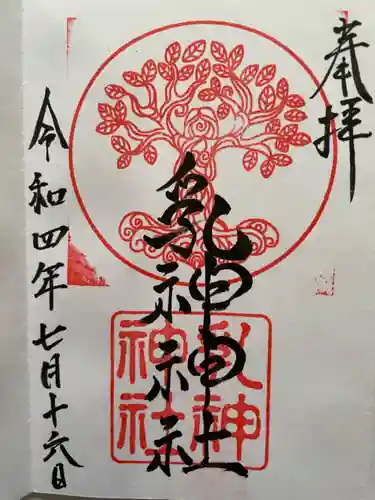 奉拝
乳神神社
令和四年七月十六日
乳神
神社